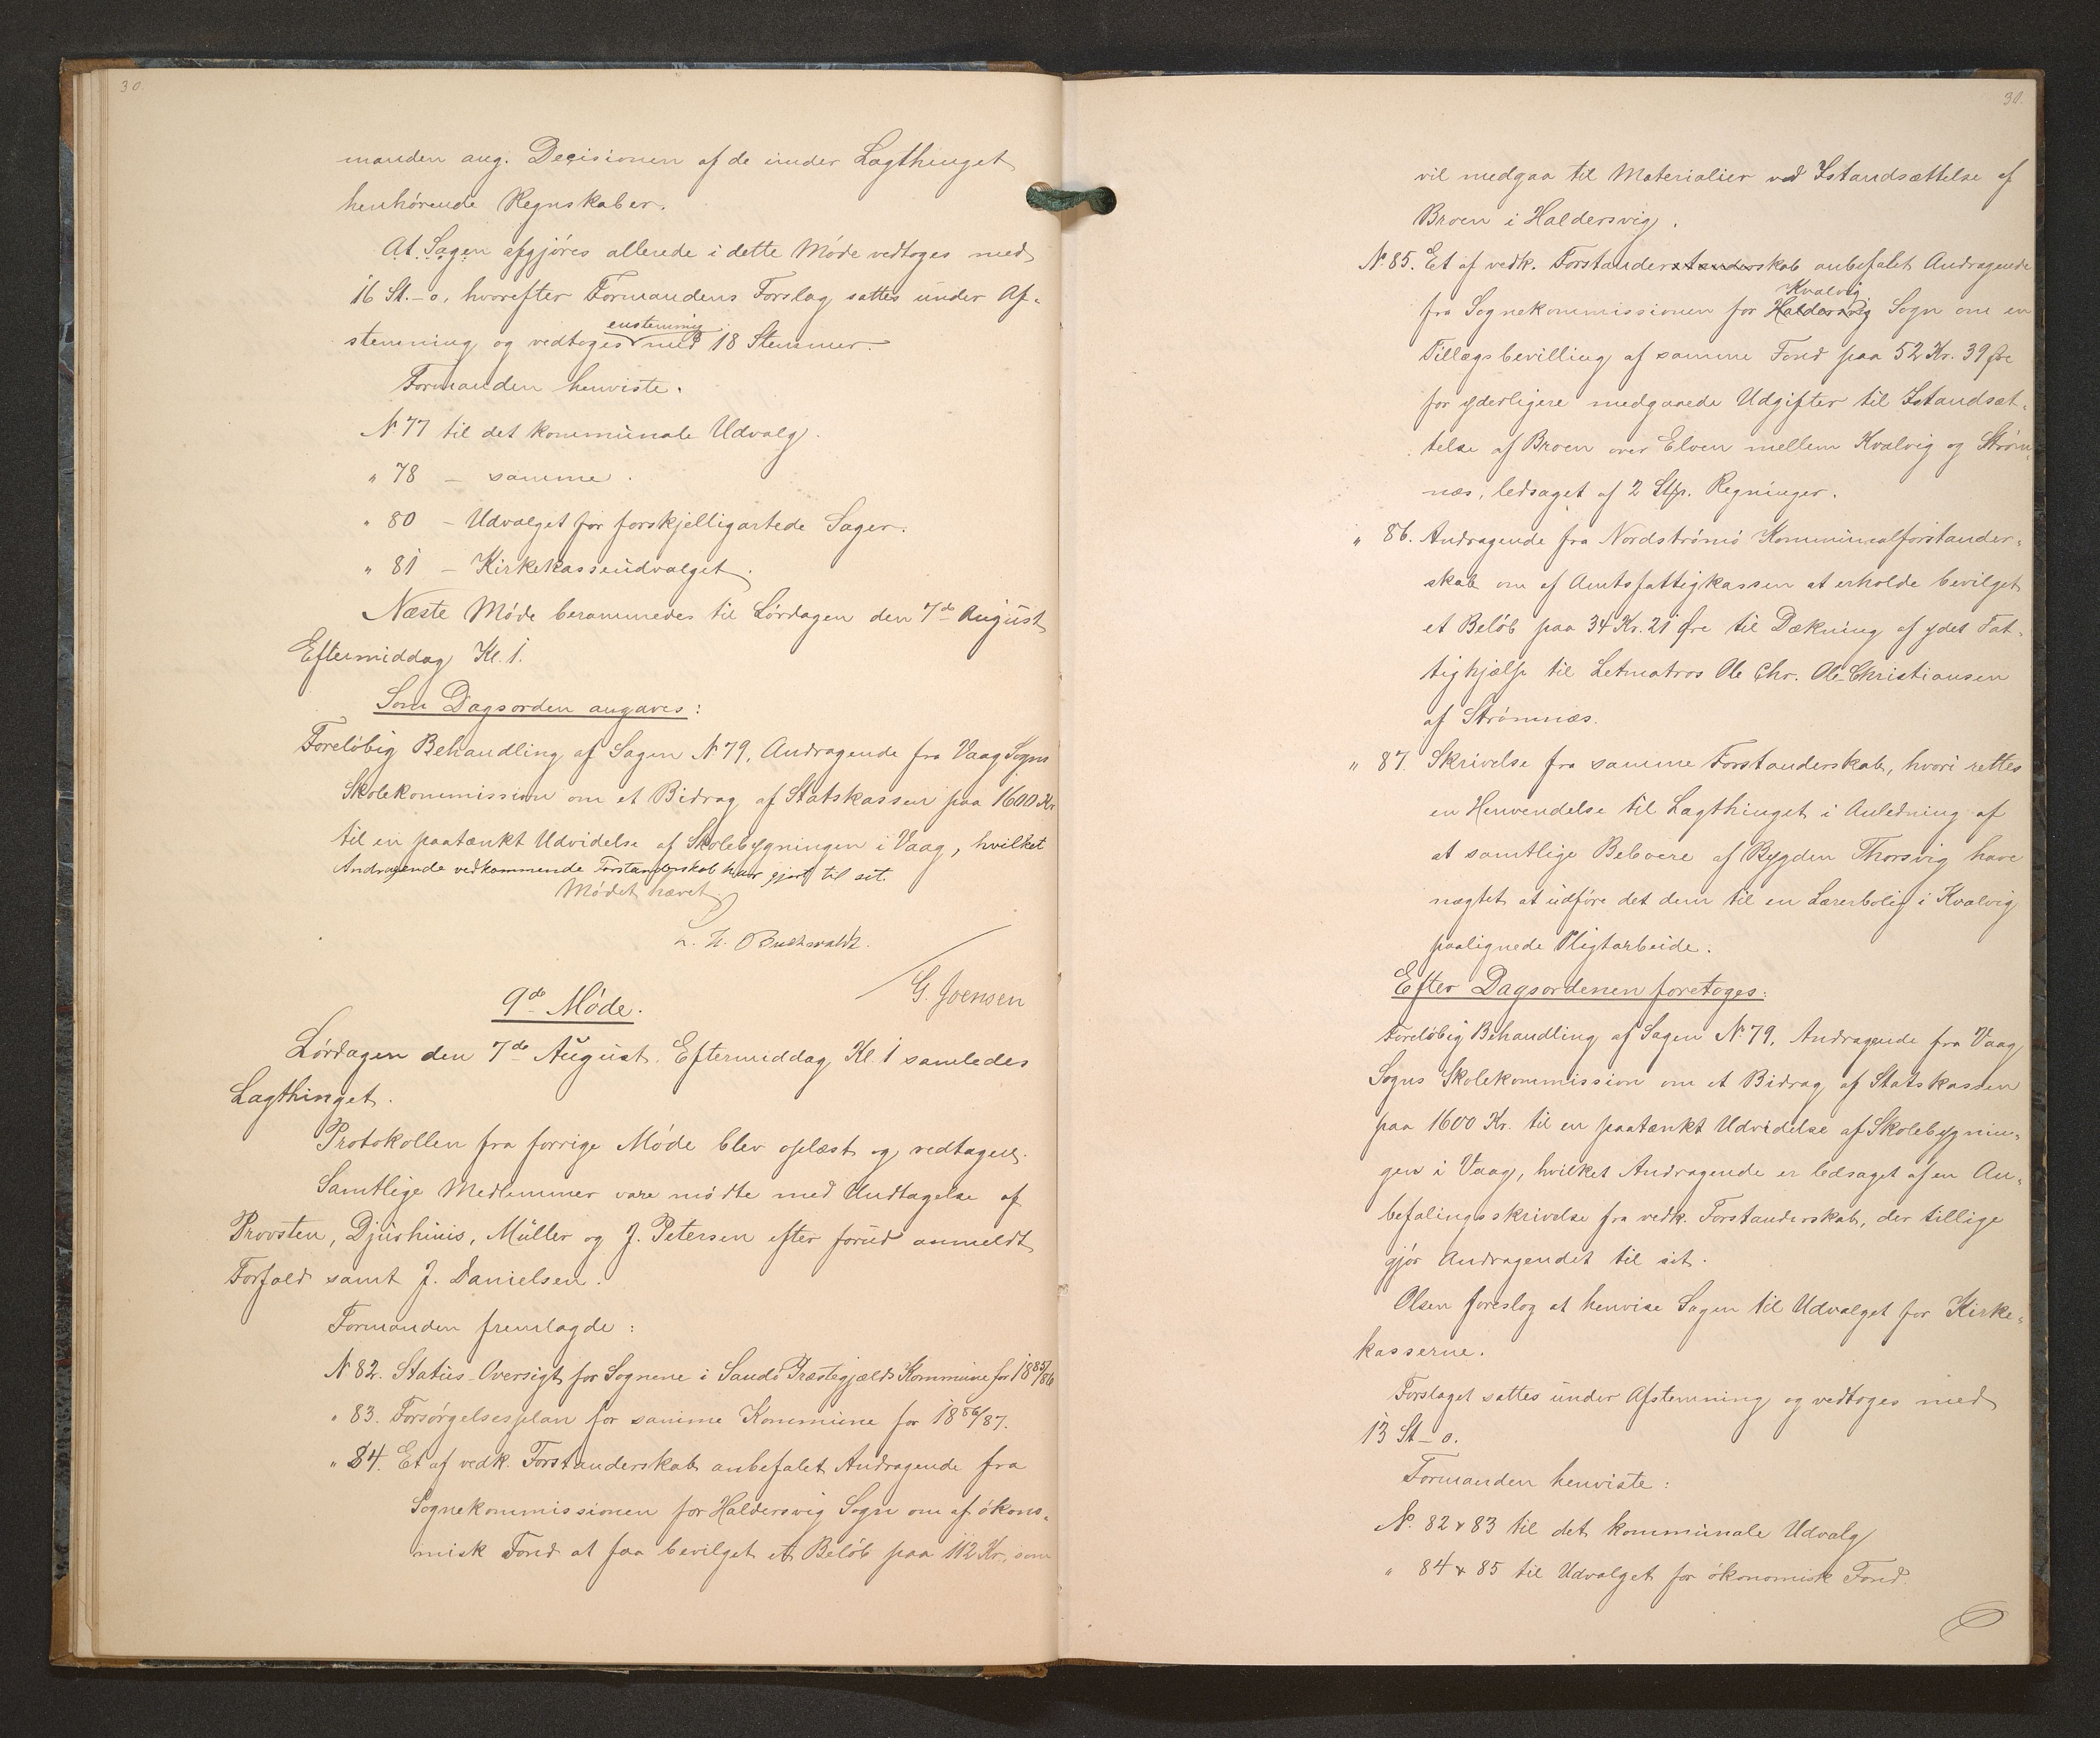 30.
manden ang. Decisionen af de under Lagthinget
henhørende Regnskaber.
At Sagen afgjøres allerede i dette Møde vedtoges med
16 St.-0, hvorefter Formandens Forslag sattes under Af-
enstemmig
stemning og vedtoges med 18 Stemmer.
Formanden henviste.
N. 77 til det kommunale Udvalg.
" 78 – samme.
" 80 – Udvalget for forskjelligartede Sager.
" 81 – Kirkekasseudvalget.
Næste Møde berammedes til Lørdagen den 7de August
Eftermiddag Kl. 1.
Som Dagsorden angaves:
Foreløbig Behandling af Sagen N. 79, Andragende fra Vaag Sogns
Skolekommission om et Bidrag af Statskassen paa 1600 Kr
til en paatænkt Udvidelse af Skolebygningen i Vaag, hvilket
Andragende vedkommende Forstanderskab har gjort til sit.
Mødet hævet.
Buchwaldt.
G. Joensen
9de Møde.
Lørdagen den 7de August Eftermiddag Kl. 1 samledes
Lagthinget.
Protokollen fra forrige Møde blev oplæst og vedtagen.
Samtlige Medlemmer vare mødte med Undtagelse af
Provsten, Djurhuus, Müller og J. Petersen efter forud anmeldt
Forfald samt J. Danielsen.
Formanden fremlagde:
N. 82. Status-Oversigt for Sognene i Sandø Præstegjælds Kommune for 1885/86
" 83. Forsørgelsesplan for samme Kommune for 1886/87.
" 84. Et af vedk. Forstanderskab anbefalet Andragende fra
Sognekommissionen for Haldersvig Sogn om af økono-
misk Fond at faa bevilget et Beløb paa 112 Kr, som
31.
vil medgaa til Materialier ved Istandsættelse af
Broen i Haldersvig.
N. 85. Et af vedk. Forstanderstanderskab anbefalet Andragende
Kvalvig
fra Sognekommissionen for Haldersvig Sogn om en
Tillægsbevilling af samme Fond paa 52 Kr. 39 Øre
for yderligere medgaaede Udgifter til Istandsæt-
telse af Broen over Elven mellem Kvalvig og Strøm-
næs, ledsaget af 2 Stk. Regninger.
" 86. Andragende fra Nordstrømø Kommunalforstander-
skab om af Amtsfattigkassen at erholde bevilget
et Beløb paa 34 Kr. 21 Øre til Dækning af ydet Fat-
tighjælp til Letmatros Ole Chr. Ole Christiansen
af Strømnæs.
" 87. Skrivelse fra samme Forstanderskab, hvori rettes
en Henvendelse til Lagthinget i Anledning af
at samtlige Beboere af Bygden Thorsvig have
nægtet at udføre det dem til en Lærerbolig i Kvalvig
paalignede Pligtarbeide.
Efter Dagsordenen foretoges:
Foreløbig Behandling af Sagen N. 79, Andragende fra Vaag
Sogns Skolekommission om et Bidrag af Statskassen
paa 1600 Kr. til en paatænkt Udvidelse af Skolebygnin-
gen i Vaag, hvilket Andragende er ledsaget af en An-
befalingsskrivelse fra vedk. Forstanderskab, der tillige
gjør Andragendet til sit.
Olsen foreslog at henvise Sagen til Udvalget for Kirke-
kasserne.
Forslaget sattes under Afstemning og vedtoges med
13 St-0.
Formanden henviste:
N. 82 & 83 til det kommunale Udvalg
" 84 & 85 til Udvalget for økonomisk Fond.